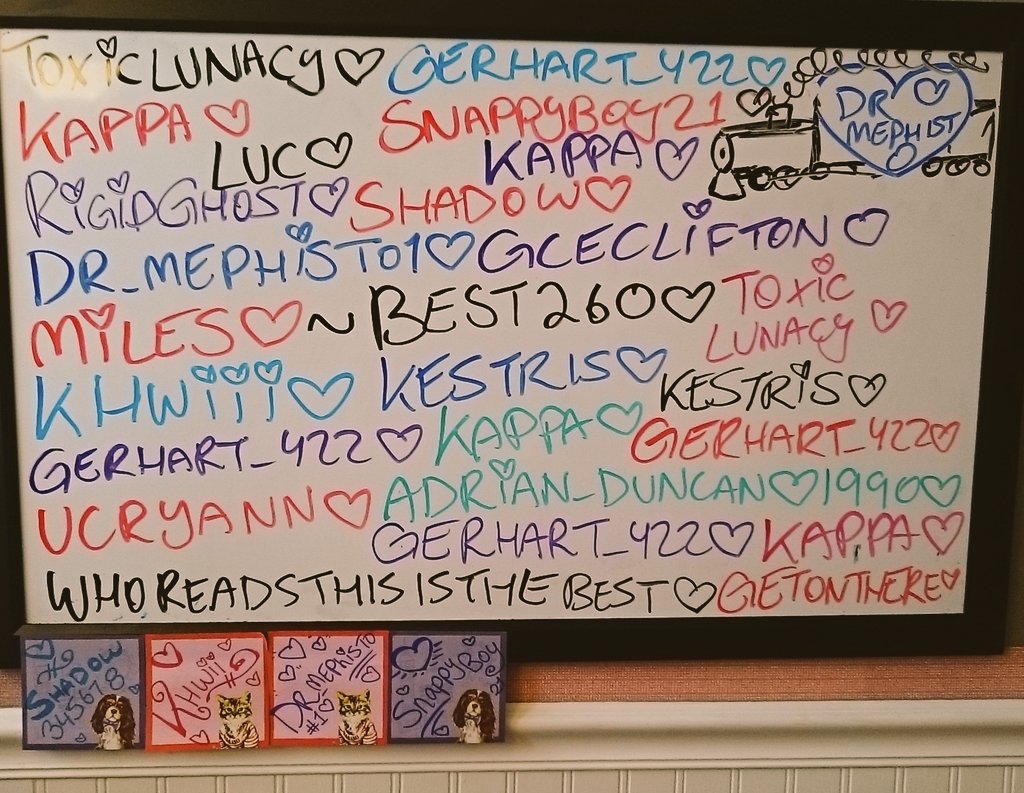 TOXICLUNACY♡ GERHART_422♡
KAPPA♡ SNAPPYBOY21♡ DR MEPHIST♡
LUC♡ KAPPA♡
RIGIDGHOST♡ SHADOW♡
DR_MEPHISTO1♡ GCECLIFTON♡
MILES♡~ BEST260♡ TOXIC
LUNACY♡
KHWIII♡ KESTRIS♡ KESTRIS♡
GERHART_422♡ KAPPA♡ GERHART_422♡
UCRYANN♡ ADRIAN_DUNCAN♡1990♡
GERHART_422♡ KAPPA♡
WHOREADSTHISISTHEBEST♡ GETONTHERE♡
SHADOW
345678
KHWII
DR_MEPHISTO
#1♡
SNAPPYBOY